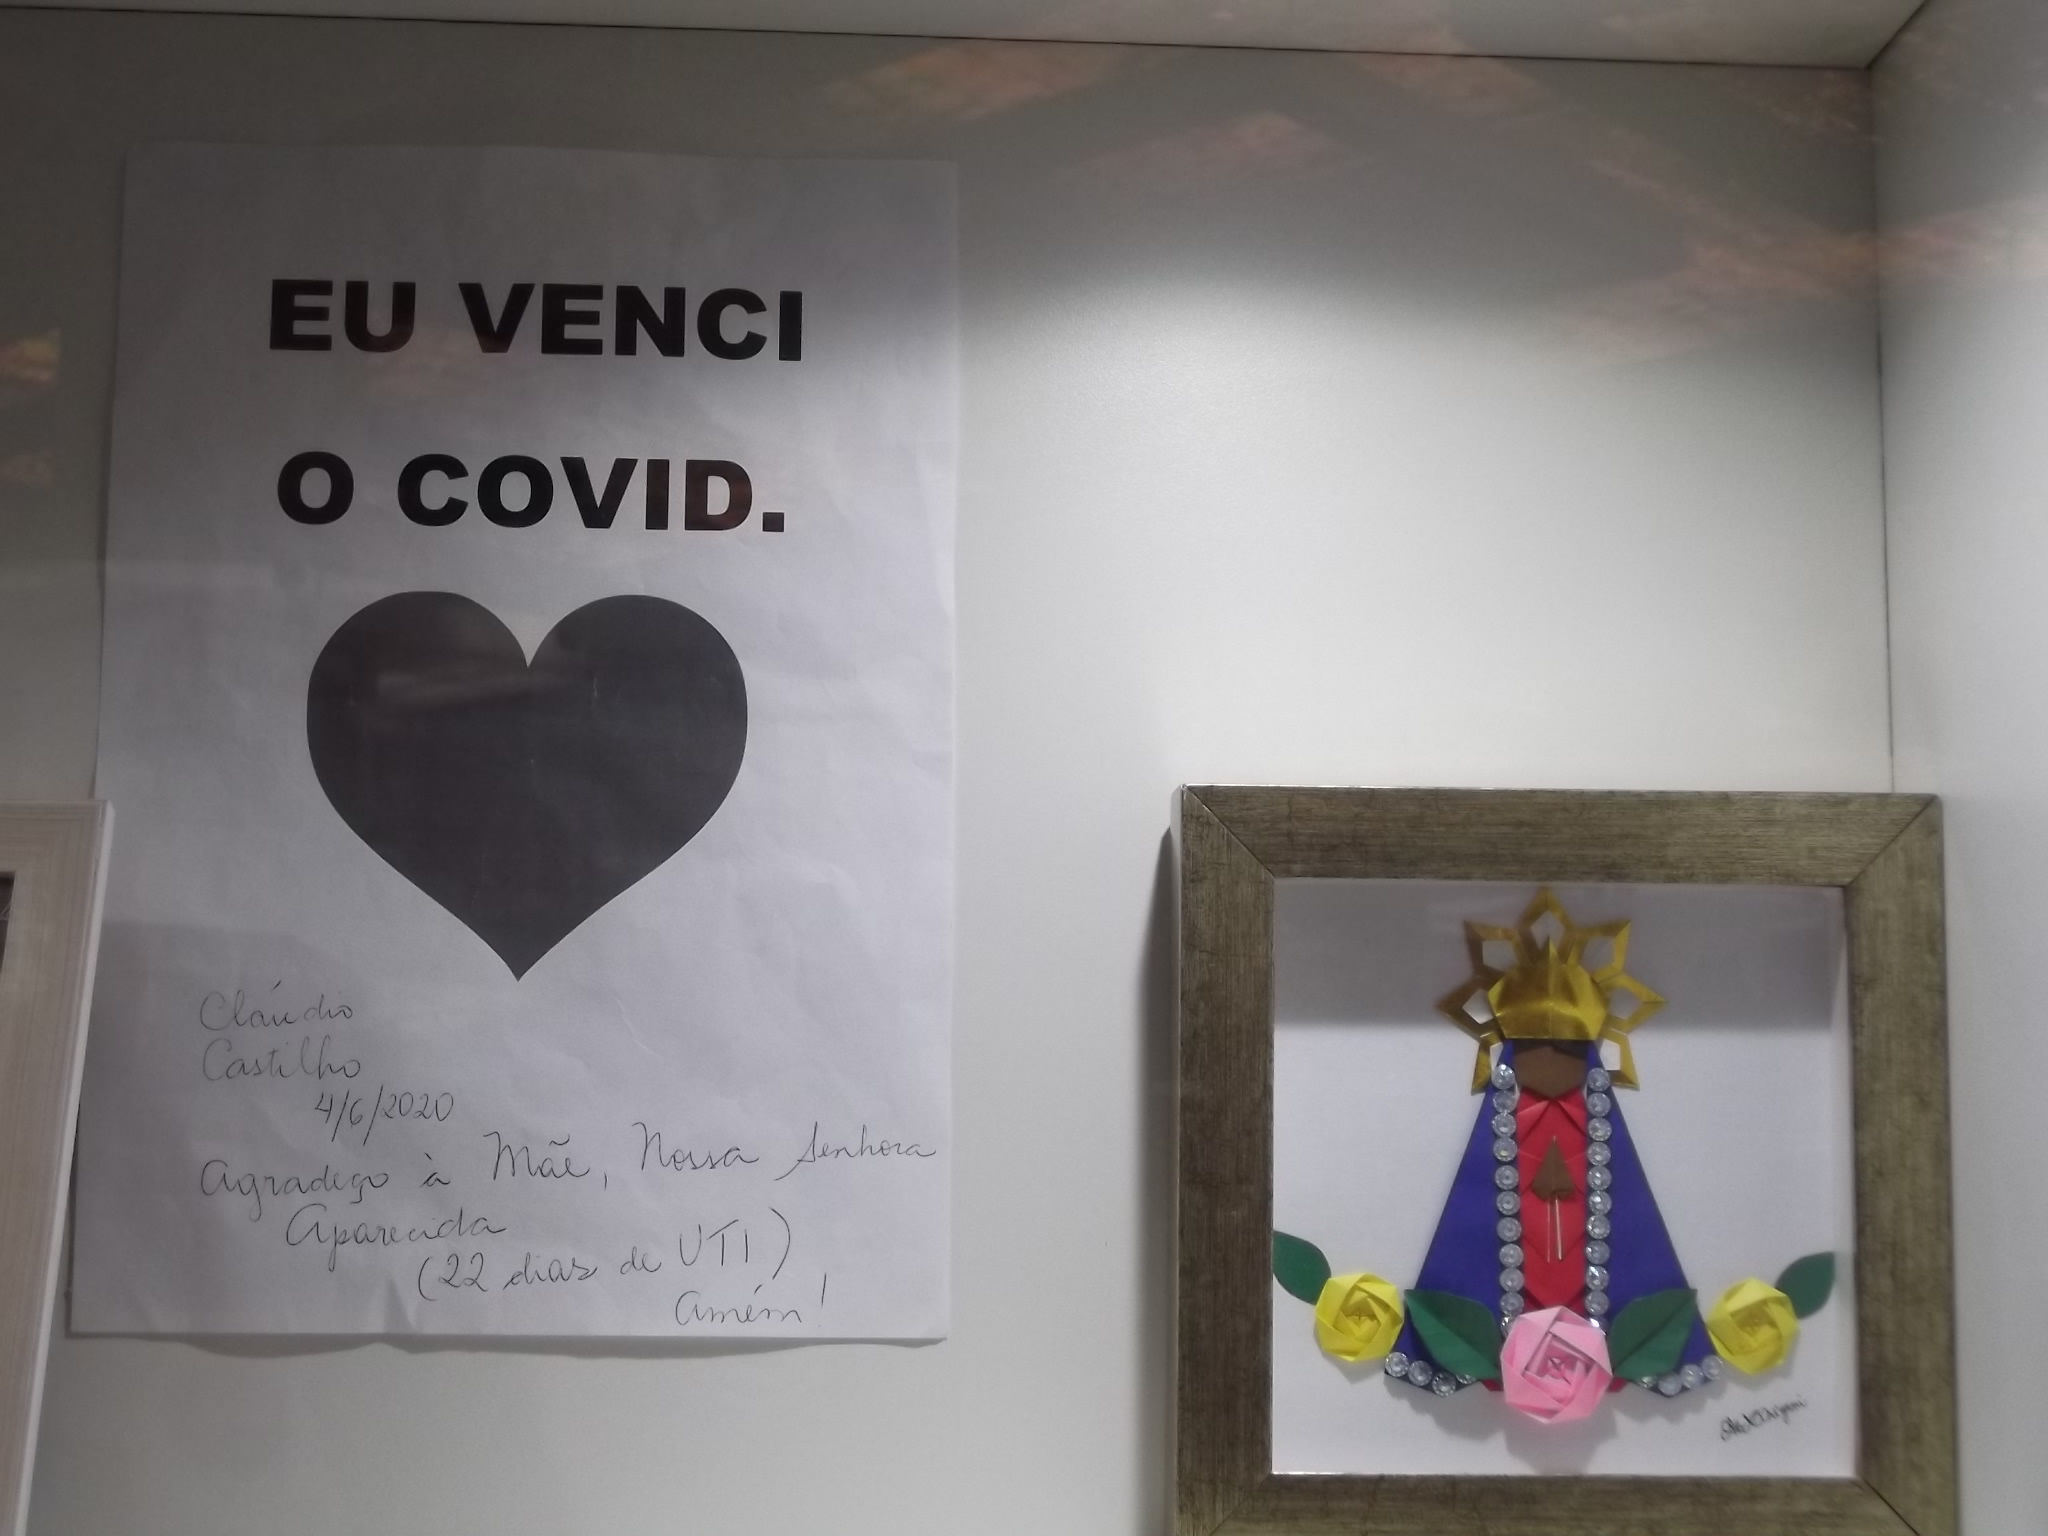 EU VENCI
O COVID.
Cláudio
Castilho
4/6/2020
Agradeço à Mãe, Nossa Senhora
Aparecida
(22 dias de UTI)
Amém!